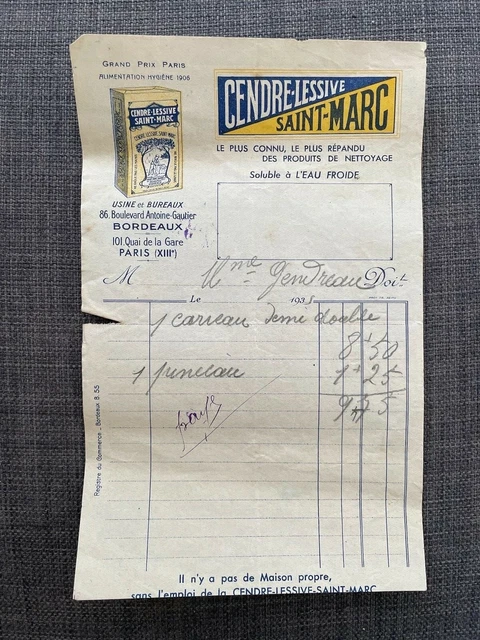 GRAND PRIX PARIS
ALIMENTATION HYGIÈNE 1906
CENDRE-LESSIVE
SAINT-MARC
CENDRE-LESSIVE
SAINT-MARC
LE PLUS CONNU, LE PLUS RÉPANDU
DES PRODUITS DE NETTOYAGE
Soluble à L'EAU FROIDE
USINE et BUREAUX
86, Boulevard Antoine-Gautier
BORDEAUX
101, Quai de la Gare
PARIS (XIIIe)
M Mme Gendreau Doit
Le 1935
1 carreau demi double
8 50
1 pinceau 1 25
9 75
Registre du Commerce - Bordeaux B 55
Il n'y a pas de Maison propre,
sans l'emploi de la CENDRE-LESSIVE-SAINT-MARC